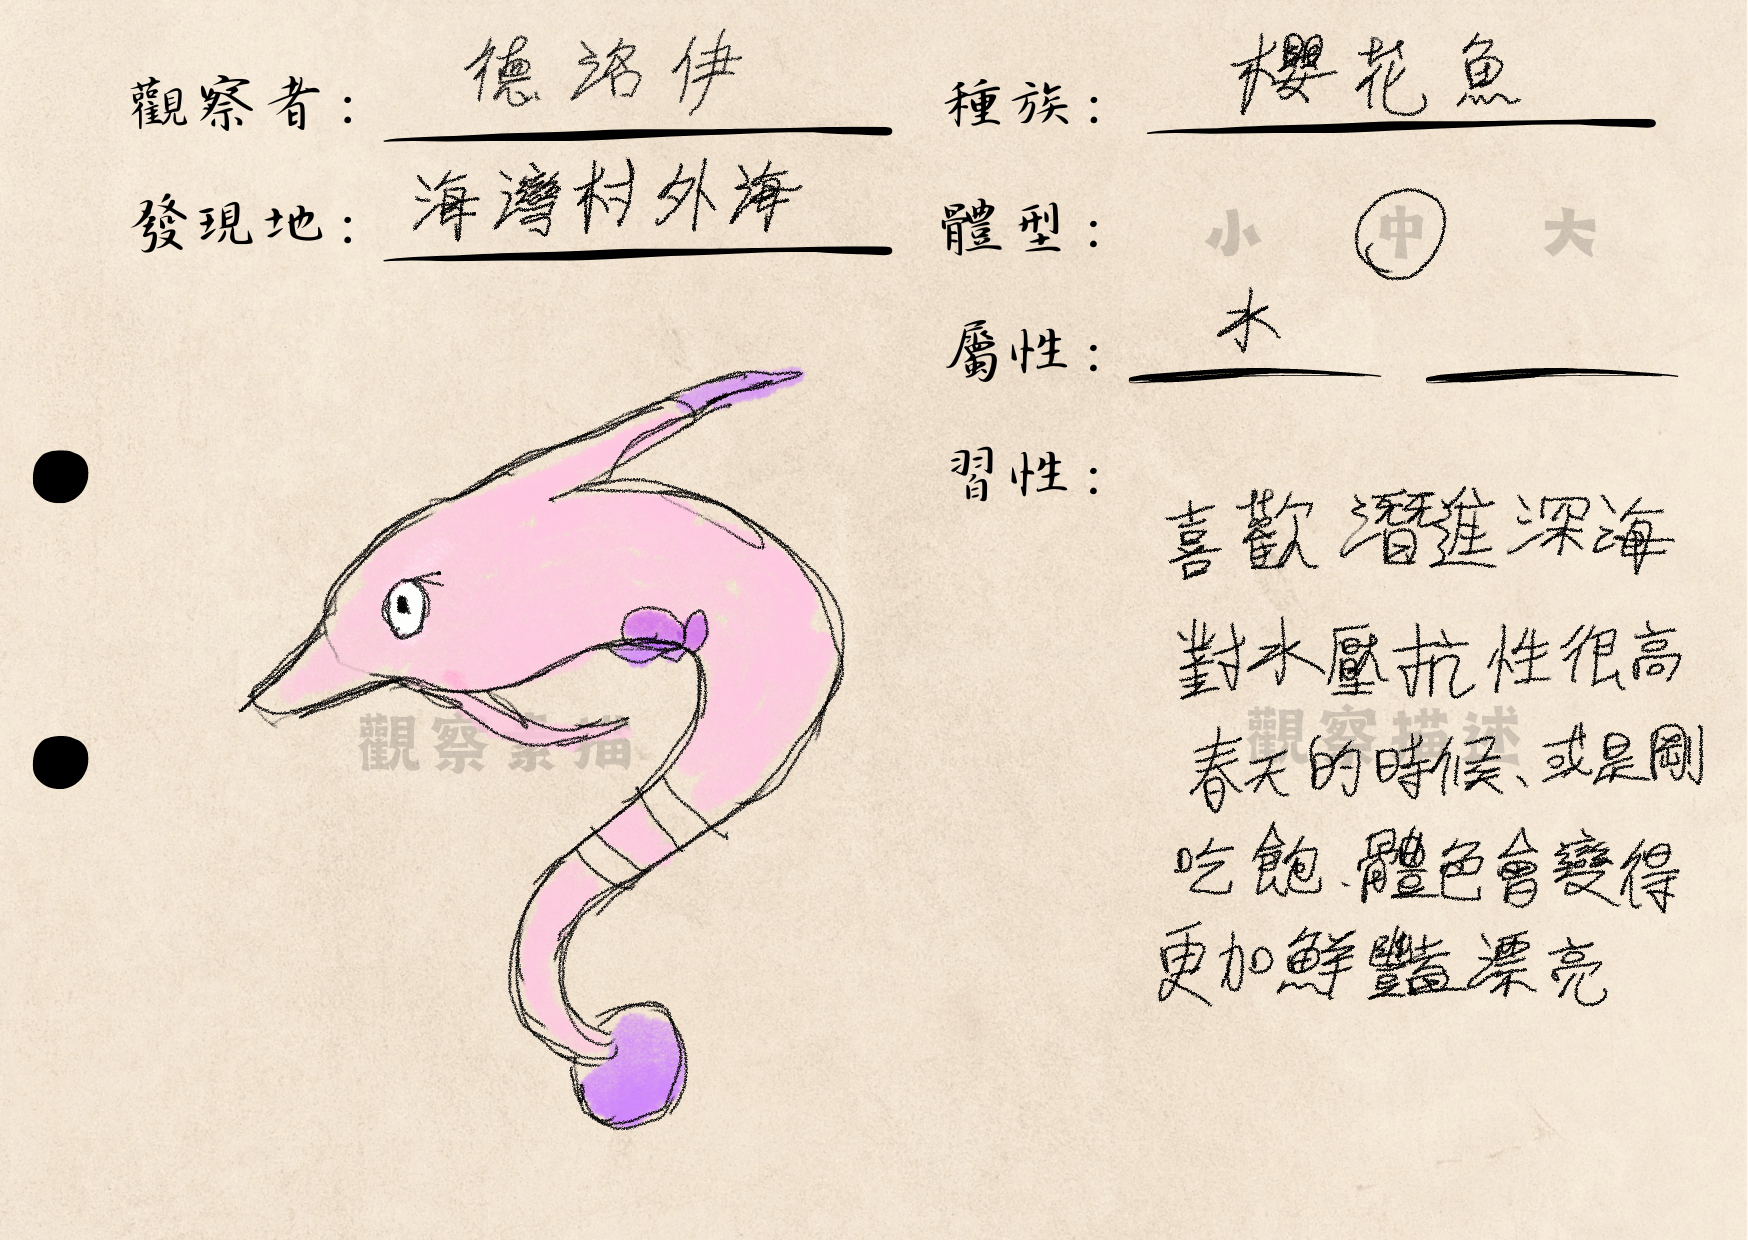 觀察者： 德洛伊
種族： 櫻花魚
發現地： 海灣村外海
體型： 小 中 大
屬性： 水
習性：
喜歡潛進深海
對水壓抗性很高
觀察素描
觀察描述
春天的時候、或是剛
吃飽、體色會變得
更加鮮豔漂亮